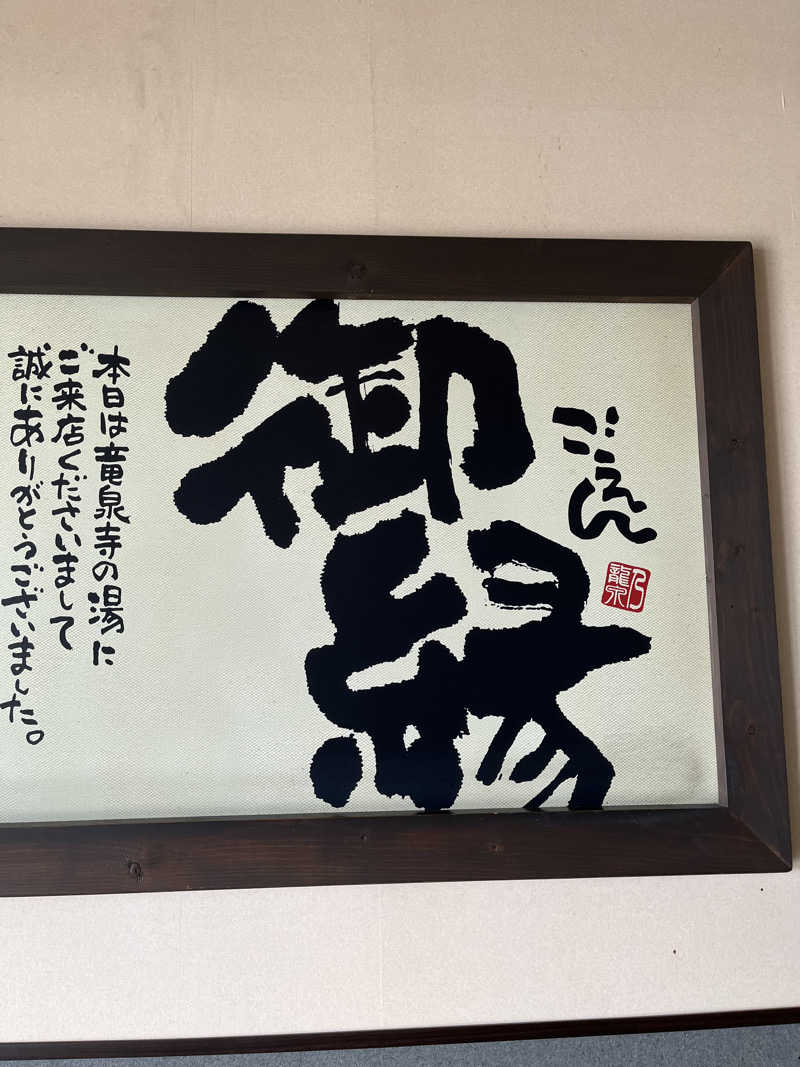 ごえん
御縁
乃
龍泉
本日は竜泉寺の湯に
ご来店くださいまして
誠にありがとうございました。